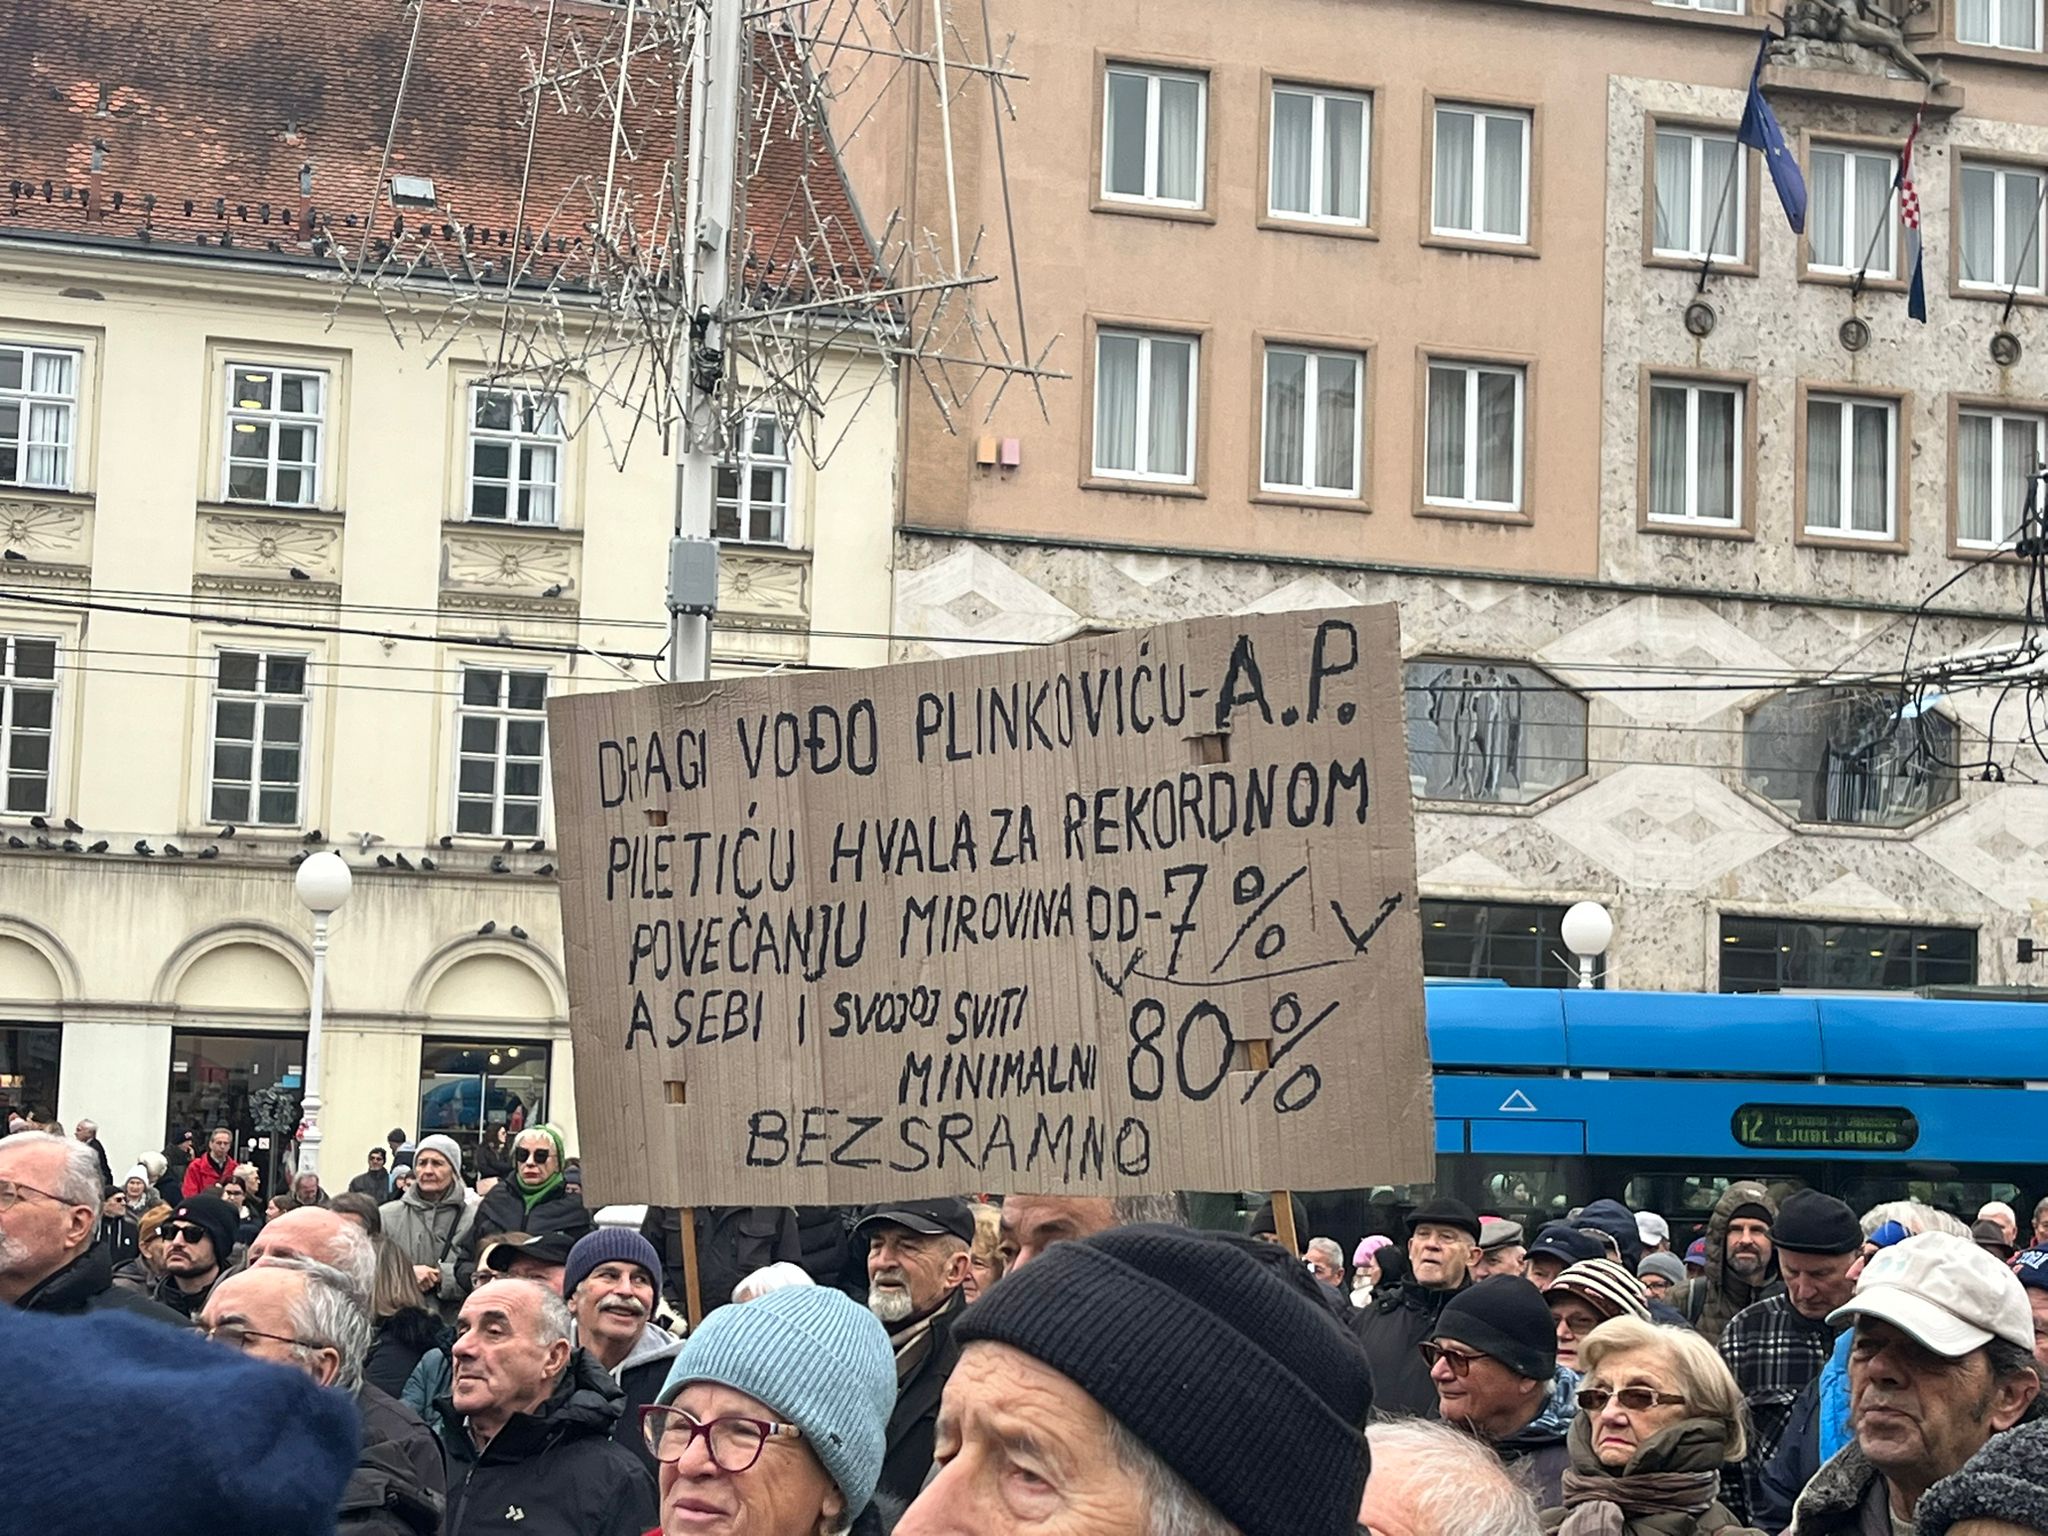 DRAGI VOĐO PLINKOVIĆU-A.P.
PILETIĆU HVALA ZA REKORDNOM
POVEČANJU MIROVINA OD-7%
A SEBI I SVOJOJ SVITI
MINIMALNI 80%
BEZSRAMNO
12
LJUBLJANICA